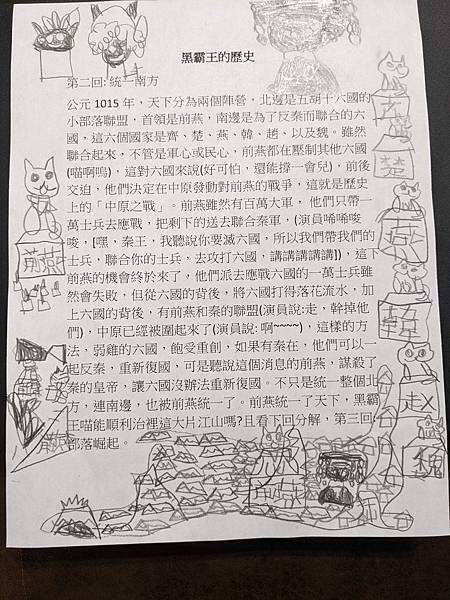 黑霸王的歷史
第二回: 統一南方
公元 1015 年，天下分為兩個陣營，北邊是五胡十六國的
小部落聯盟，首領是前燕，南邊是為了反秦而聯合的六
國，這六個國家是齊、楚、燕、韓、趙、以及魏。雖然
聯合起來，不管是軍心或民心，前燕都在壓制其他六國
(喵啊嗚)，這對六國來說(好可怕，還能撐一會兒)，前後
交迫，他們決定在中原發動對前燕的戰爭，這就是歷史
上的「中原之戰」。前燕雖然有百萬大軍，他們只帶一
萬士兵去應戰，把剩下的送去聯合秦軍，(演員唏唏唆
唆，[嘿，秦王，我聽說你要滅六國，所以我們帶我們的
士兵，聯合你的士兵，去攻打六國，講講講講講])，這下
前燕的機會終於來了，他們派去應戰六國的一萬士兵雖
然會失敗，但從六國的背後，將六國打得落花流水，加
上六國的背後，有前燕和秦的聯盟(演員說:走，幹掉他
們)，中原已經被圍起來了(演員說: 啊~~~~)，這樣的方
法，弱雞的六國，飽受重創，如果有秦在，他們可以一
起反秦，重新復國，可是聽說這個消息的前燕，謀殺了
秦的皇帝，讓六國沒辦法重新復國。不只是統一整個北
方，連南邊，也被前燕統一了。前燕統一了天下，黑霸
王喵能順利治裡這大片江山嗎?且看下回分解，第三回:
部落崛起。
前燕
楚
燕
韓
趙
魏
前燕